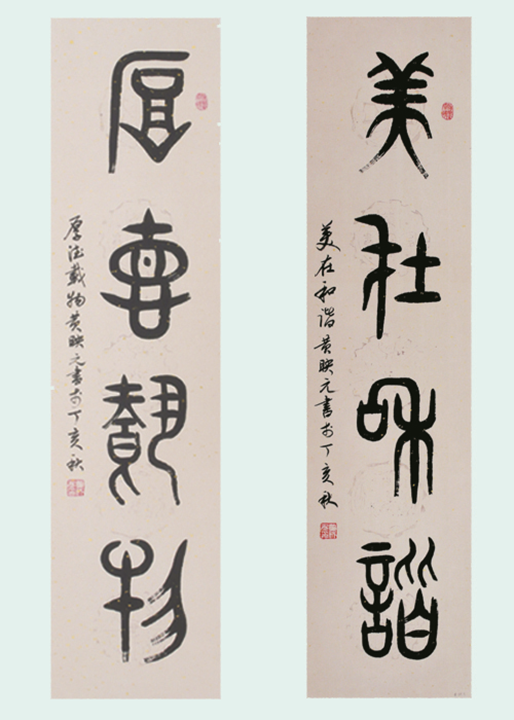 美在和谐
美在和谐黄映元书于丁亥秋
厚德载物
厚德载物黄映元书于丁亥秋